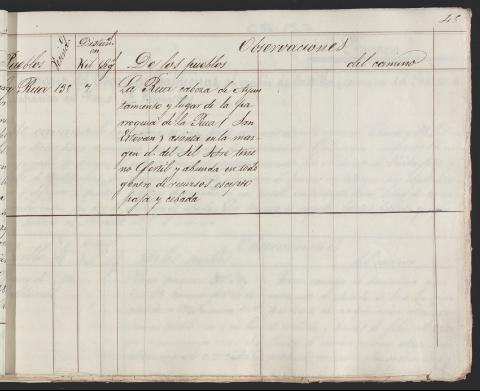 48
Observaciones
Pueblos Vecind.º Distanc.ª en Kil. Leg.s De los pueblos del camino
La Rua 135 7 La Rua cabeza de Ayun
tamiento y lugar de la pa-
rroquia de la Rua (San
Estevan) asienta en la mar-
gen d. del Sil sobre terre
no fertil y abunda en todo
género de recursos escepto
paja y cebada